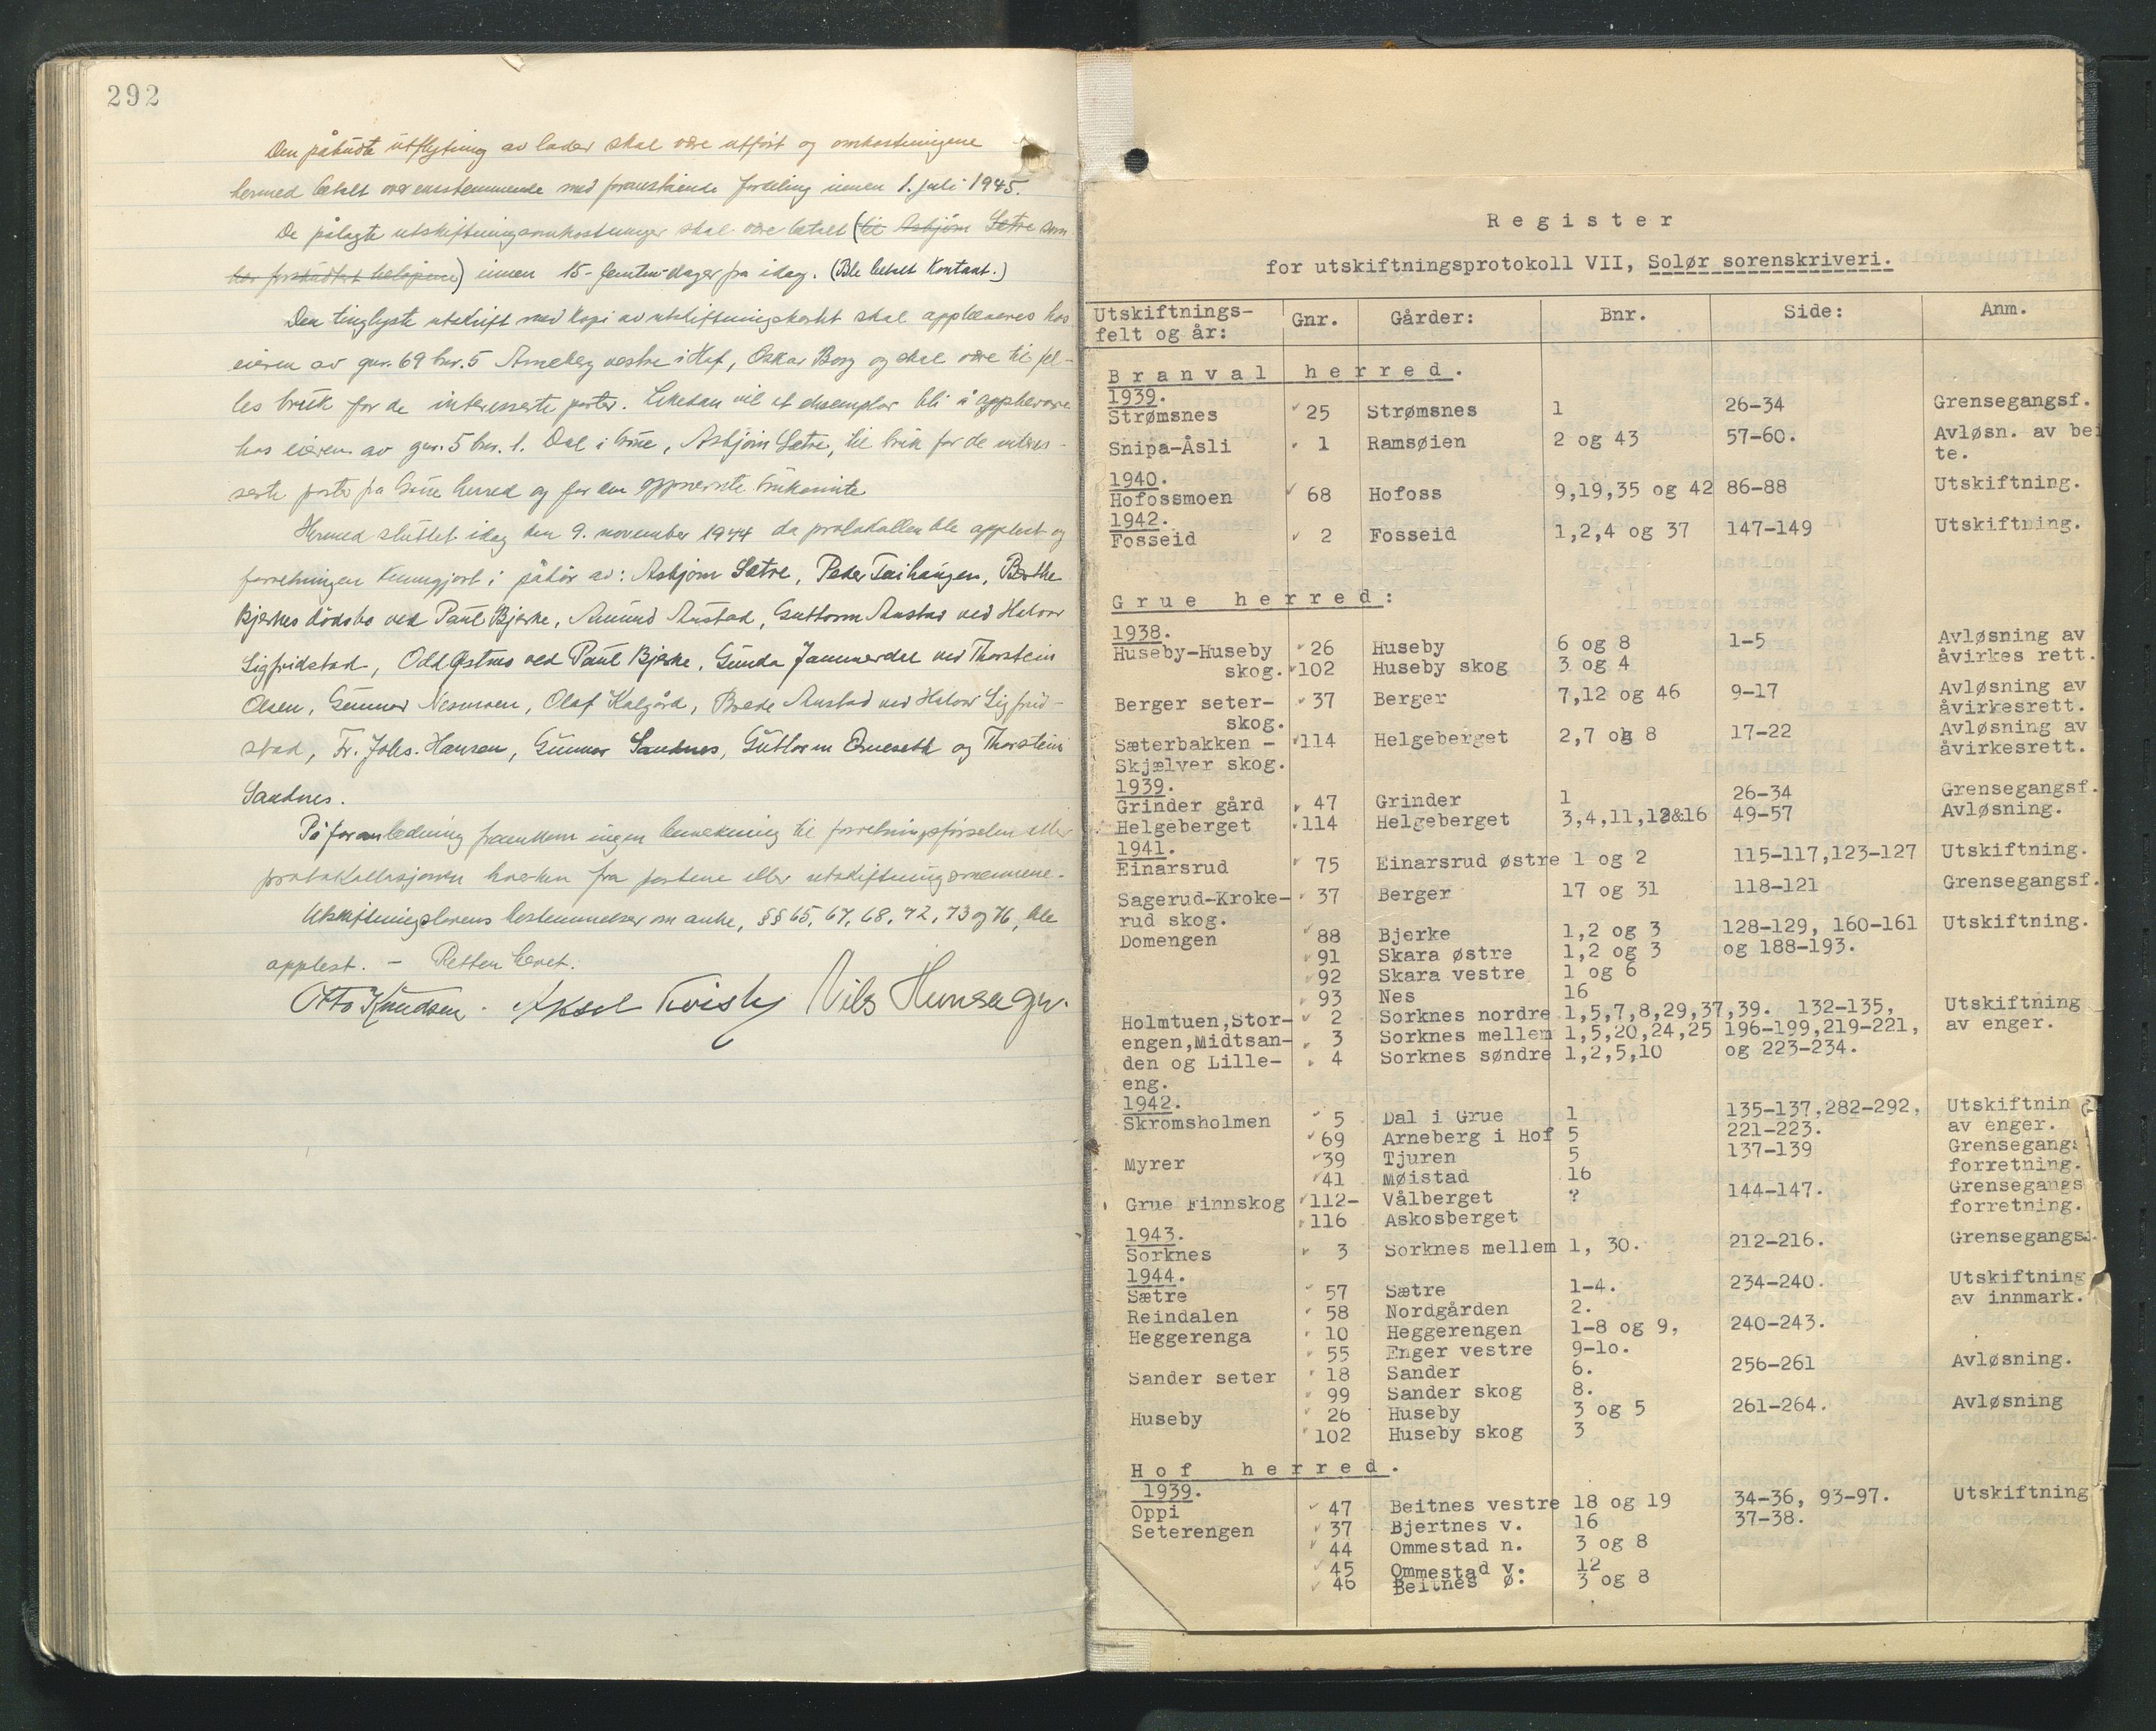 292
Den påbudte utflytning av lader skal være utført og omkostningene
hermed betalt overensstemmende med foranstående fordeling innen 1. juli 1945.
De pålagte utskiftningsomkostninger skal være betalt (til Asbjørn Sætre som
har forskudtert beløpene) innen 15-femten-dager fra idag. (Ble betalt kontant.)
Den tinglyste utskrift med kopi av utskiftningskartet skal oppbevares hos
eieren av gnr. 69 bnr. 5 Arneberg vestre i Hof, Oskar Borg og skal være til fel-
les bruk for de interesserte parter. Likedan vil et eksemplar bli å oppbevare
hos eieren av gnr. 5 bnr. 1. Dal i Grue, Asbjørn Sætre, til bruk for de interes-
serte parter fra Grue herred og for den oppnevnte
Hermed sluttet idag den 9. november 1944 da protokollen ble opplest og
forretningen kunngjort i påhør av: Asbjørn Sætre, Peder Taihaugen, Berthe
Bjerkes dødsbo ved Paul Bjerke, Amund Austad, Guttorm Austad ved Halvor
Sigfridstad, Odd Østmo ved Paul Bjerke, Gunda Jammerdal ved Thorstein
Olsen, Gunnar Nesmoen, Olaf Kalgård, Brede Austad ved Halvor Sigfrid-
stad, Fr. Johs. Hansen, Gunnar Sandnes, Guttorm Erneseth og Thorstein
Sandnes.
På foranledning framkom ingen bemerkning til forretningsførselen eller
protokollasjonen hverken fra partene eller utskiftningsmennene.
Utskiftningslovens bestemmelser om anke, §§ 65, 67, 68, 72, 73 og 76, ble
opplest. — Retten hevet.
Otto Knudsen. Aksel Kvisly Nils Hunsager.
Register
for utskiftningsprotokoll VII, Solør sorenskriveri.
Utskiftnings- felt og år: Gnr. Gårder: Bnr. Side: Anm.
Branval herred.
1939.
Strømsnes 25 Strømsnes 1 26-34 Grensegangsf.
Snipa-Åsli 1 Ramsøien 2 og 43 57-60. Avløsn. av bei
te.
1940.
Hofossmoen 68 Hofoss 9,19,35 og 42 86-88 Utskiftning.
1942.
Fosseid 2 Fosseid 1,2,4 og 37 147-149 Utskiftning.
Grue herred:
1938.
Huseby-Huseby 26 Huseby 6 og 8 1-5 Avløsning av
skog. 102 Huseby skog 3 og 4 åvirkes rett.
Berger seter- 37 Berger 7,12 og 46 9-17 Avløsning av
skog. åvirkesrett.
Sæterbakken - 114 Helgeberget 2,7 og 8 17-22 Avløsning av
Skjælver skog. åvirkesrett.
1939.
Grinder gård 47 Grinder 1 26-34 Grensegangsf.
Helgeberget 114 Helgeberget 3,4,11,12&16 49-57 Avløsning.
1941.
Einarsrud 75 Einarsrud østre 1 og 2 115-117,123-127 Utskiftning.
Sagerud-Kroke- 37 Berger 17 og 31 118-121 Grensegangsf.
rud skog.
Domengen 88 Bjerke 1,2 og 3 128-129, 160-161 Utskiftning.
91 Skara østre 1,2 og 3 og 188-193.
92 Skara vestre 1 og 6
93 Nes 16
Holmtuen,Stor- 2 Sorknes nordre 1,5,7,8,29,37,39. 132-135, Utskiftning
engen,Midtsan- 3 Sorknes mellem 1,5,20,24,25 196-199,219-221, av enger.
den og Lille- 4 Sorknes søndre 1,2,5,10 og 223-234.
eng.
1942.
Skromsholmen 5 Dal i Grue 1 135-137,282-292, Utskiftning
69 Arneberg i Hof 5 221-223. av enger.
Myrer 39 Tjuren 5 137-139 Grensegangs
41 Møistad 16 forretning.
Grue Finnskog 112- Vålberget ? 144-147. Grensegangs
116 Askosberget forretning.
1943.
Sorknes 3 Sorknes mellem 1, 30. 212-216. Grensegangs.
1944.
Sætre 57 Sætre 1-4. 234-240. Utskiftning
Reindalen 58 Nordgården 2. av innmark.
Heggerenga 10 Heggerengen 1-8 og 9, 240-243.
55 Enger vestre 9-1o.
Sander seter 18 Sander 6. 256-261 Avløsning.
99 Sander skog 8.
Huseby 26 Huseby 3 og 5 261-264. Avløsning
102 Huseby skog 3
Hof herred.
1939.
Oppi 47 Beitnes vestre 18 og 19 34-36, 93-97. Utskiftning
Seterengen 37 Bjertnes v. 16 37-38.
44 Ommestad n. 3 og 8
45 Ommestad v. 12
46 Beitnes ø. 3 og 8